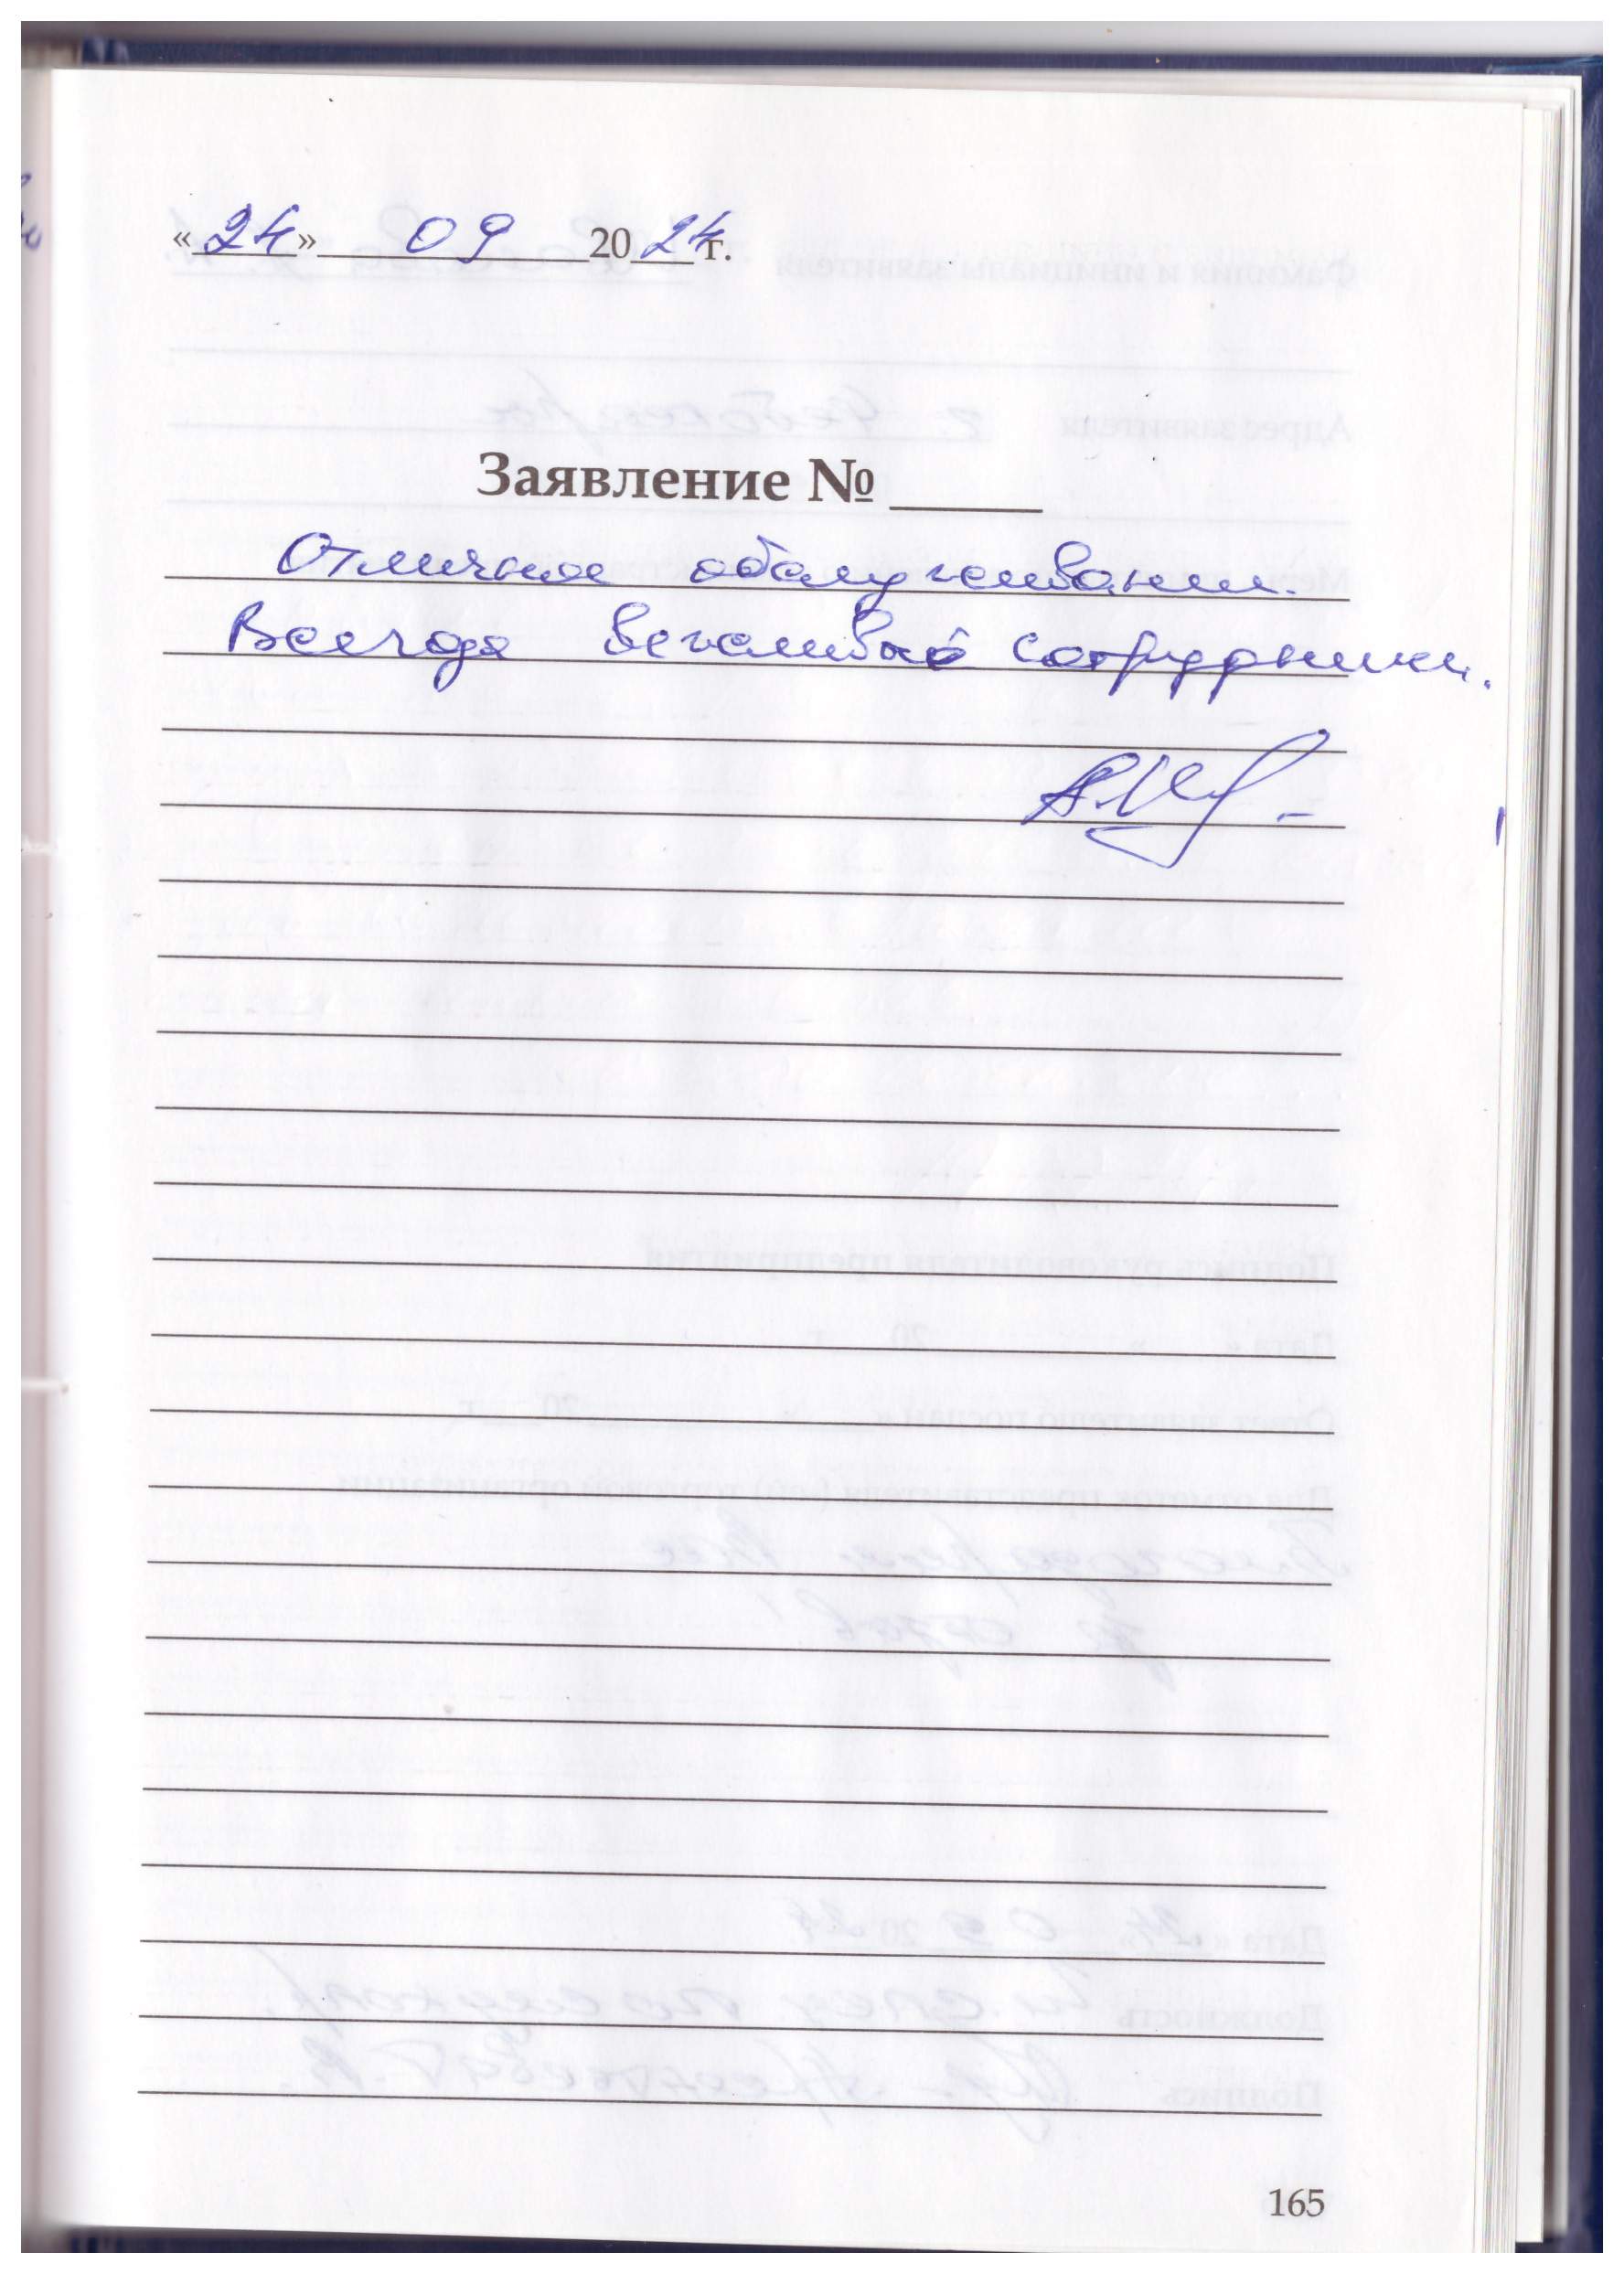 «24» 09 2024 г.
Заявление №
Отличное обслуживание.
Всегда вежливые сотрудники.
165